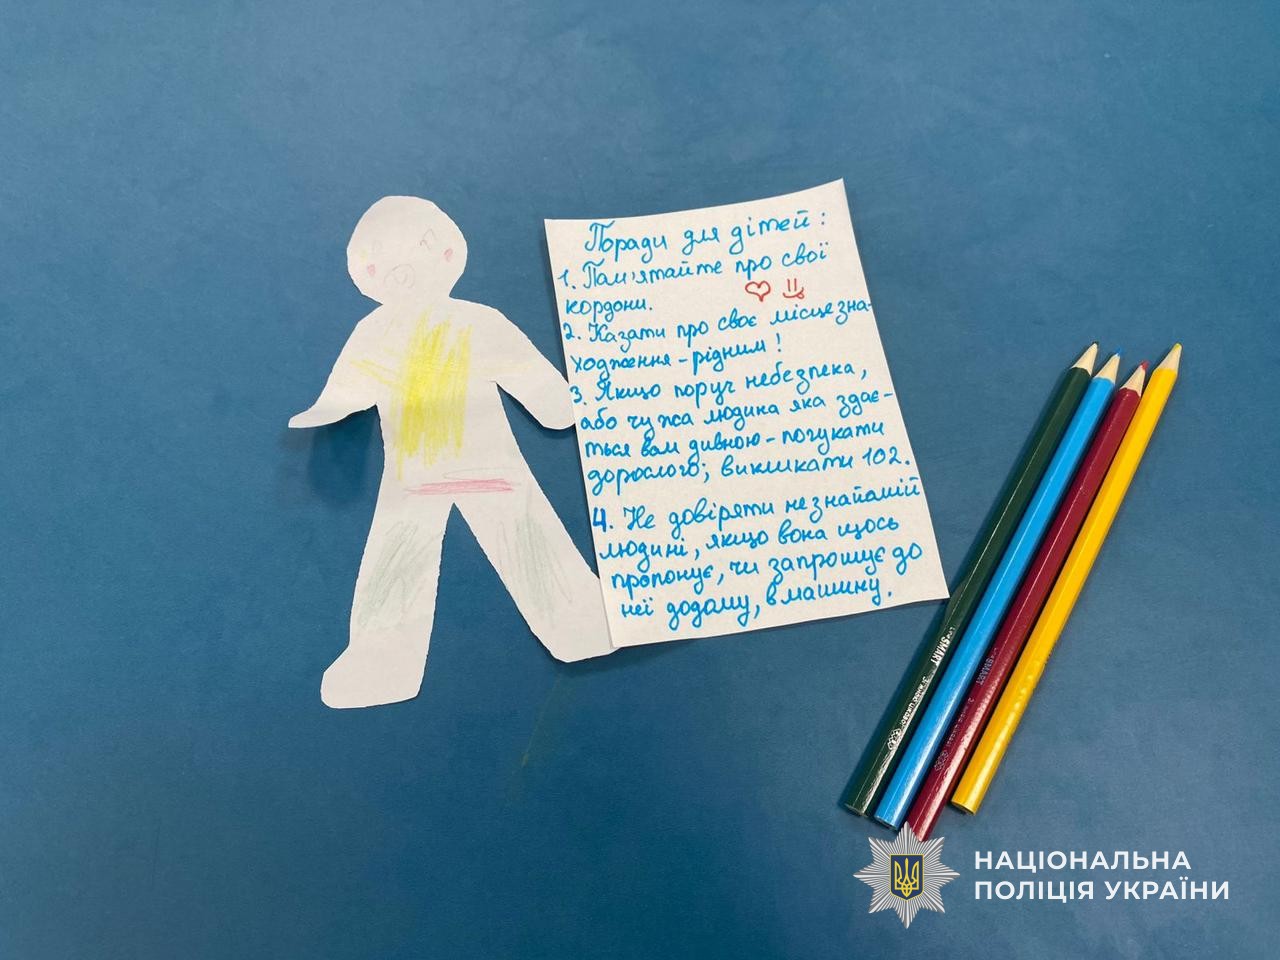 Поради для дітей:
1. Пам'ятайте про свої
кордони.
2. Казати про своє місцезна-
ходження - рідним!
3. Якщо поруч небезпека,
або чужа людина яка здає-
ться вам дивною - погукати
дорослого; викликати 102.
4. Не довіряти незнайомій
людині, якщо вона щось
пропонує, чи запрошує до
неї додому, в машину.
SMART
SMART
НАЦІОНАЛЬНА
ПОЛІЦІЯ УКРАЇНИ